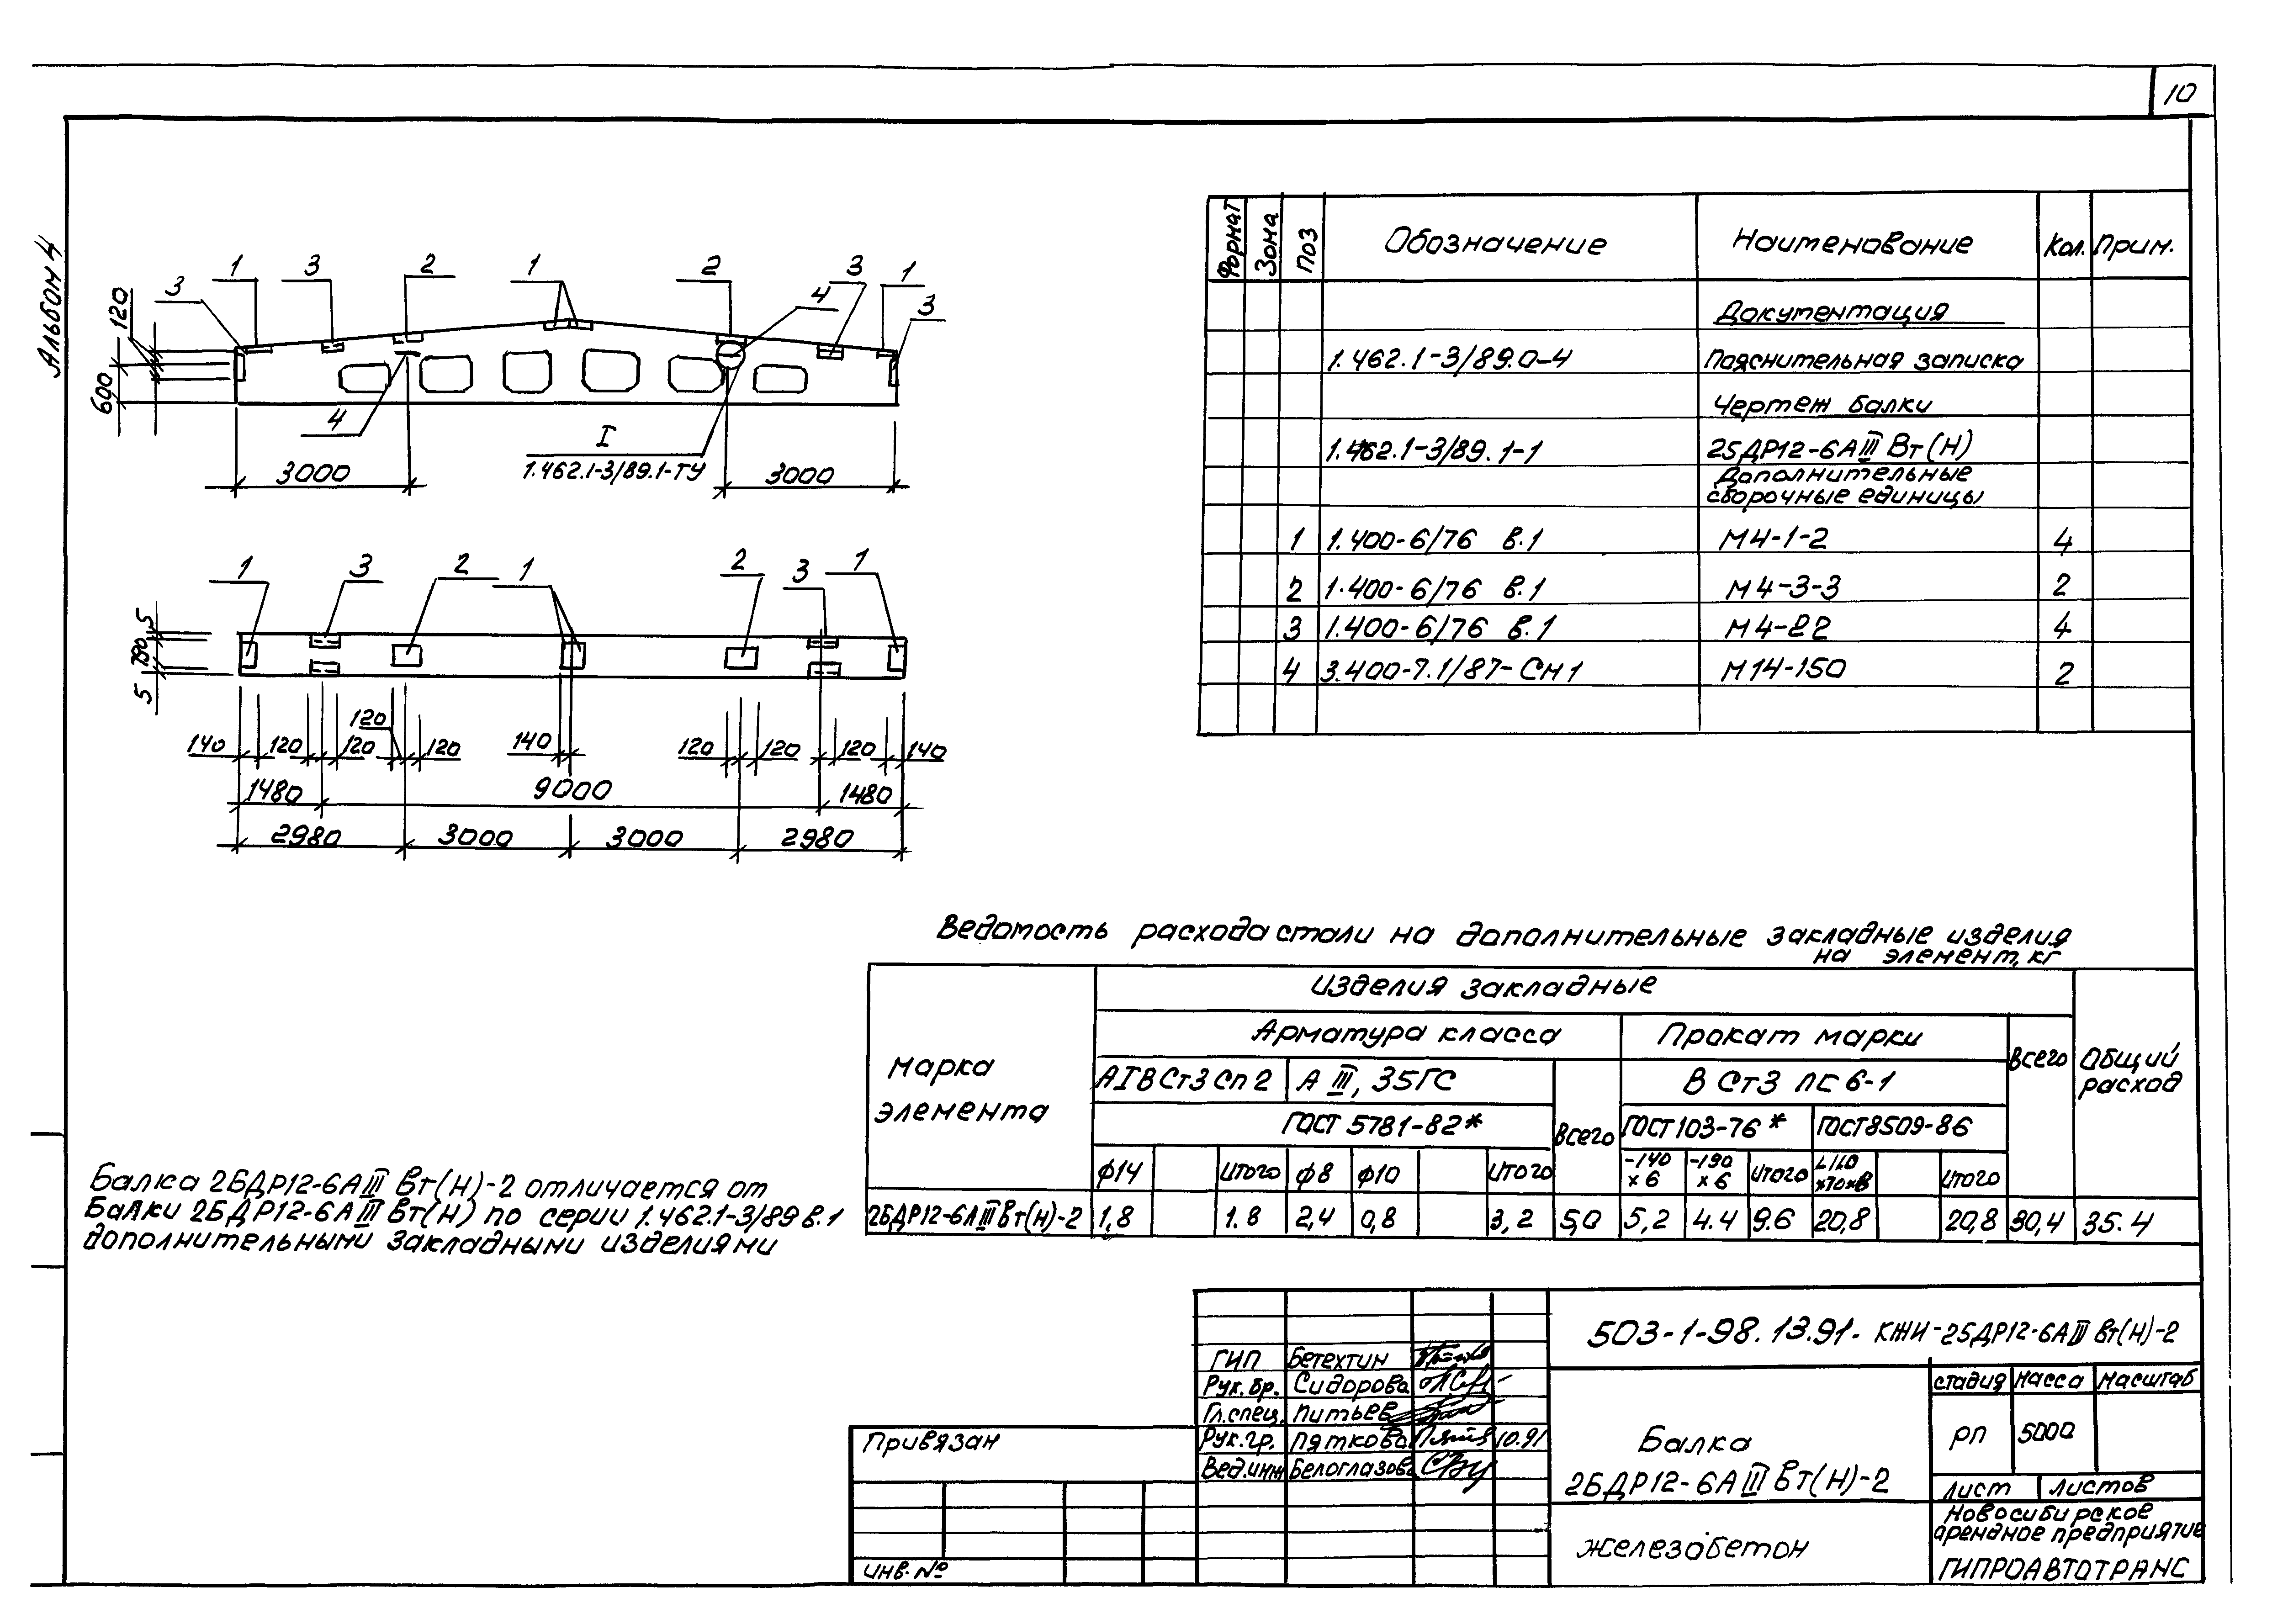 10
Альбом 4
1 3 2 1 2 3 1
3 4 3
120
600
4
I
1.462.1-3/89.1-ТУ
3000 3000
1 3 2 1 2 3 1
5
190
5
120
140 120 120 120 140 120 120 120 140
1480 9000 1480
2980 3000 3000 2980
Формат Зона Поз Обозначение Наименование Кол. Прим.
Документация
1.462.1-3/89.0-4 Пояснительная записка
Чертеж балки
1.462.1-3/89.1-1 2БДР12-6АIII Вт(Н)
Дополнительные
сборочные единицы
1 1.400-6/76 в.1 М4-1-2 4
2 1.400-6/76 в.1 М4-3-3 2
3 1.400-6/76 в.1 М4-22 4
4 3.400-7.1/87-СМ1 М14-150 2
Ведомость расхода стали на дополнительные закладные изделия
на элемент, кг
Марка
элемента
Изделия закладные
Арматура класса Прокат марки Всего Общий
расход
АI ВСт3Сп2 А III, 35ГС Всего В Ст3 пс 6-1
ГОСТ 5781-82* ГОСТ103-76* ГОСТ8509-86
ф14 Итого ф8 ф10 Итого -140
×6 -190
×6 Итого Итого
2БДР12-6АIIIВт(Н)-2 1,8 1.8 2,4 0,8 3,2 5,0 5,2 4.4 9.6 20,8 20,8 30,4 35.4
Балка 2БДР12-6АIII Вт(Н)-2 отличается от
балки 2БДР12-6АIII Вт(Н) по серии 1.462.1-3/89 в.1
дополнительными закладными изделиями
503-1-98.13.91-КЖИ-2БДР12-6АIII Вт(Н)-2
ГИП Бетехтин
Рук. бр. Сидорова
Гл.спец. Питьев
Рук.гр. Пяткова 10.91
Вед.инж Белоглазова
Балка
2БДР12-6АIII Вт(Н)-2
железобетон
Стадия Масса Масштаб
РП 5000
Лист Листов
Новосибирское
арендное предприятие
ГИПРОАВТОТРАНС
Привязан
Инв.№